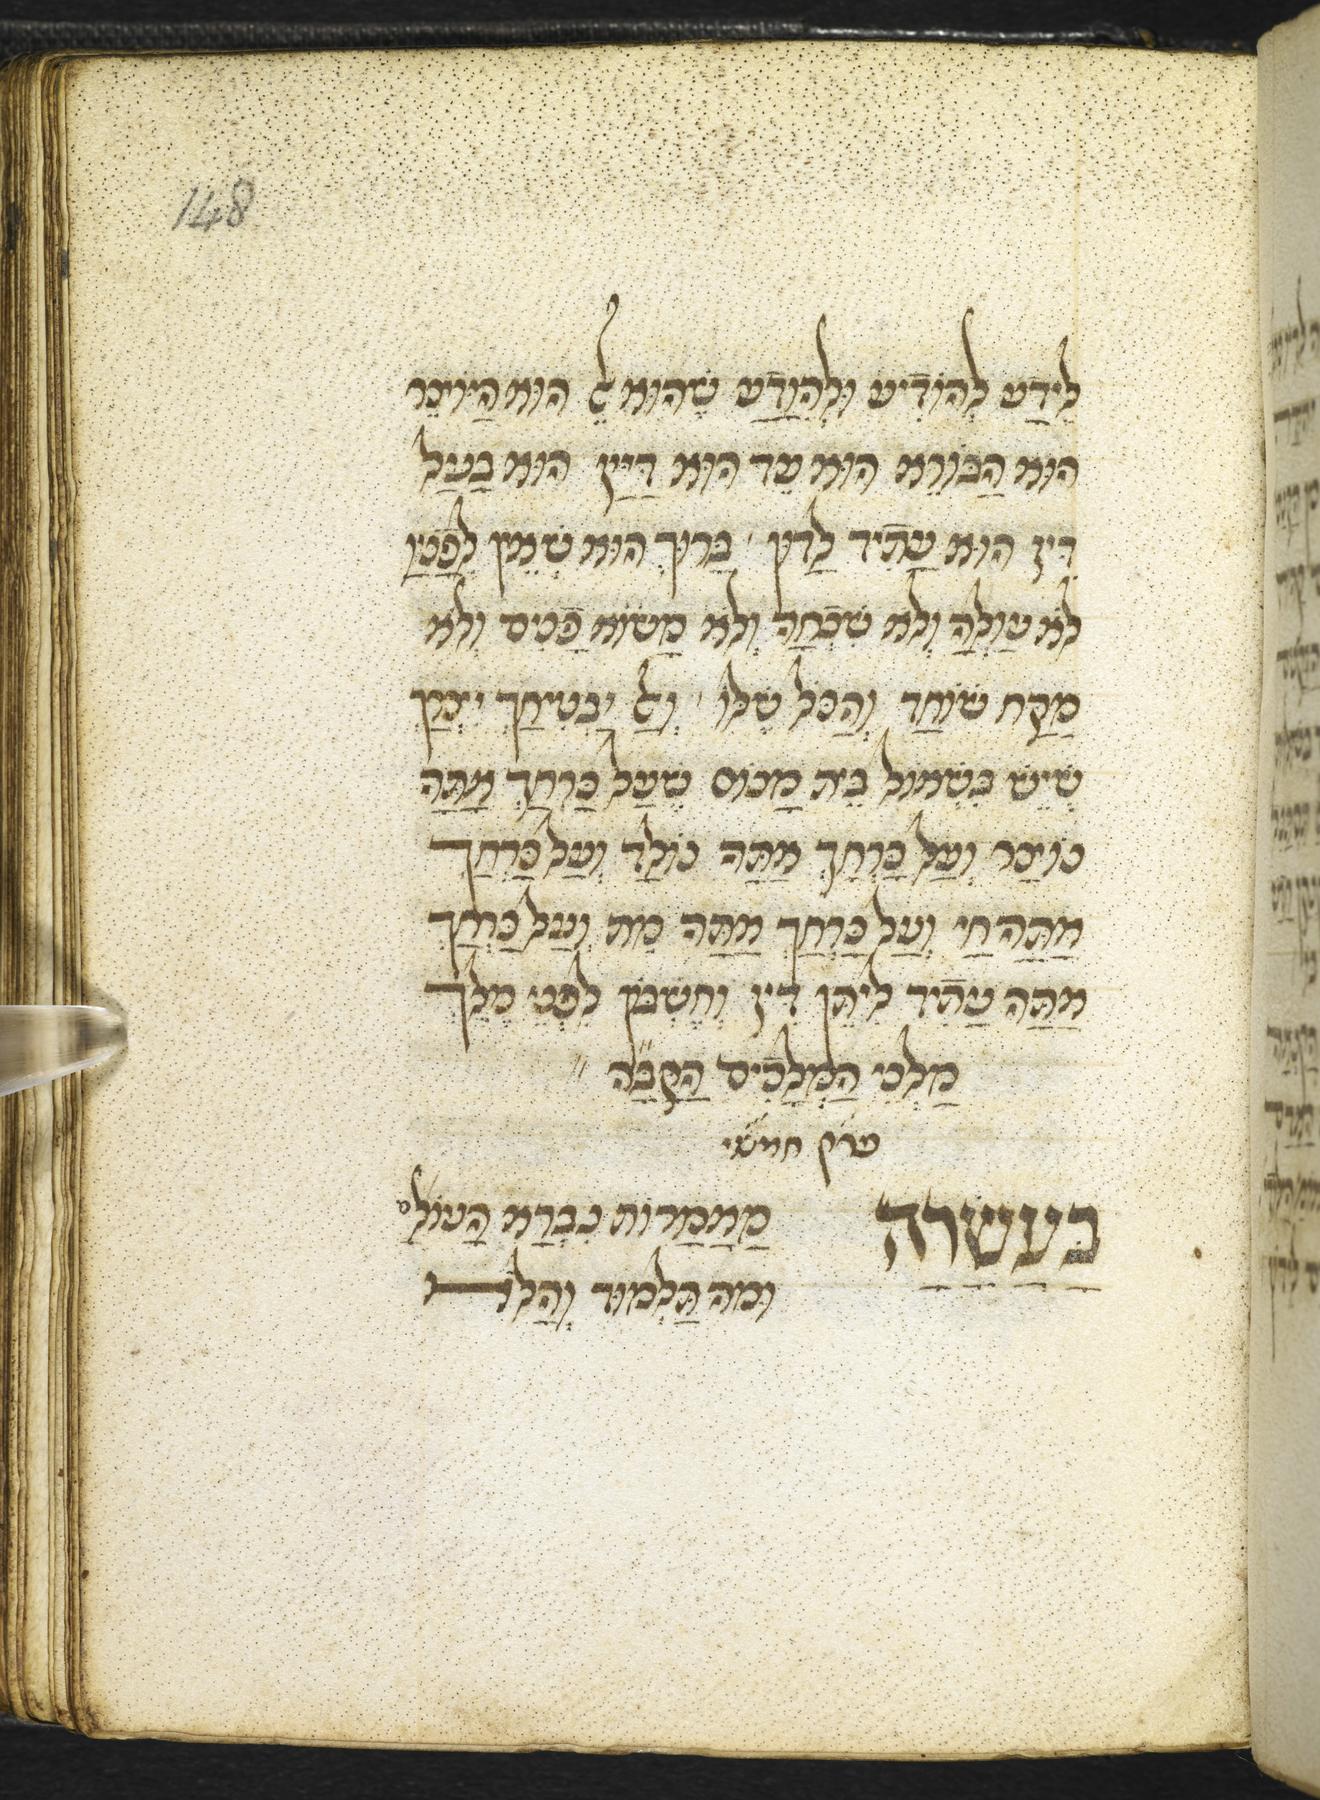 148
לִידַע לְהוֹדִיעַ וּלְהִוָּדַע שֶׁהוּא אֵל הוּא הַיּוֹצֵר
הוּא הַבּוֹרֵא הוּא עֵד הוּא דַּיָּין הוּא בַעַל
דִּין הוּא עָתִיד לָדוּן׳ בָּרוּךְ הוּא שֶׁאֵין לְפָנָיו
לֹא עַוְלָה וְלֹא שִׁכְחָה וְלֹא מַשּׂוֹא פָּנִים וְלֹא
מַקַּח שׁוֹחַד וְהַכֹּל שֶׁלּוֹ׳ וְאַל יַבְטִיחָךְ יִצְרָךְ
שֶׁיֵּשׁ בִּשְׁאוֹל בֵּית מָנוֹס שֶׁעַל כָּרְחָךְ אַתָּה
נוֹצָר וְעַל כָּרְחָךְ אַתָּה נוֹלַד וְעַל כָּרְחָךְ
אַתָּה חַי וְעַל כָּרְחָךְ אַתָּה מֵת וְעַל כָּרְחָךְ
אַתָּה עָתִיד לִיתֵּן דִּין וְחֶשְׁבּוֹן לִפְנֵי מֶלֶךְ
מַלְכֵי הַמְּלָכִים הַקָּבָּ״ה
פרק חמישי
בַּעֲשָׂרָה מַאֲמָרוֹת נִבְרָא הָעוֹלָם
וּמַה תַּלְמוּד וַהֲלֹא